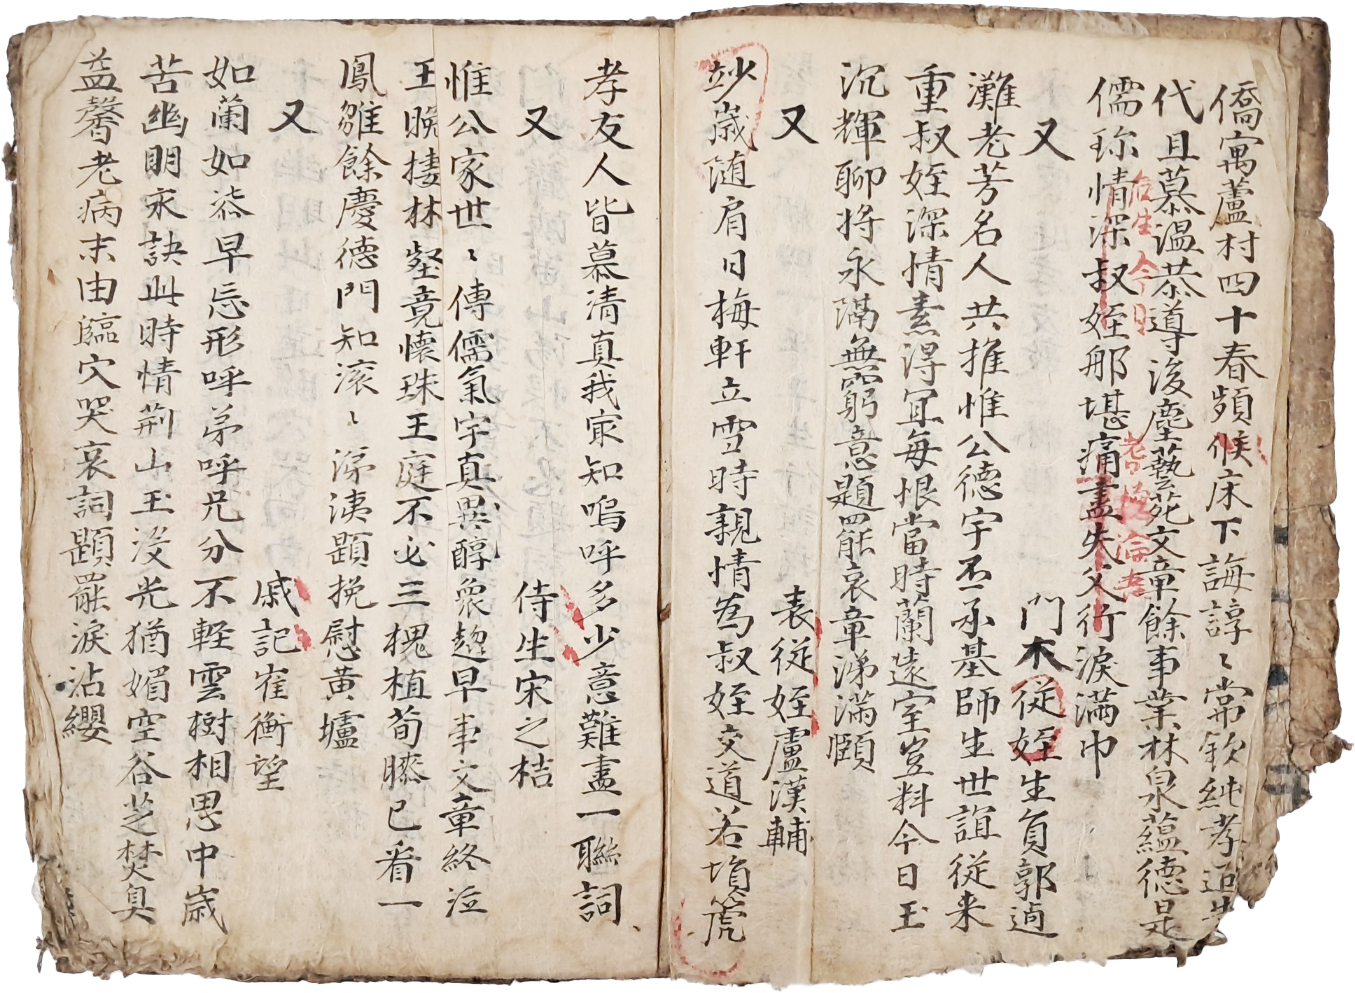 僑寓蘆村四十春頻候床下誨諄〻常欽純孝追先
代且慕溫恭導後塵藝苑文章餘事業林泉蘊德是
儒珍情深叔姪那堪痛盡失父行淚滿巾
又
門下從姪生員郭適
灘老芳名人共推惟公德宇丕承基師生世誼從来
重叔姪深情素得冝每恨當時蘭遠室豈料今日玉
沉輝聊将永隔無窮意題罷哀章涕滿頤
又
表從姪盧漢輔
玅歲随肩日梅軒立雪時親情為叔姪交道若塤箎
孝友人皆慕清真我㝡知嗚呼多少意難盡一聯詞
又
侍生宋之桔
惟公家世〻傳儒氣宇真異醇衆趍早事文章終泣
玉晚捿林壑竟懷珠王庭不必三槐植荀膝已看一
鳳雛餘慶德門知滾〻涕洟題挽慰黃壚
又
戚記崔衡望
如蘭如茶早忘形呼弟呼兄分不軽雲樹相思中歲
苦幽明永訣此時情荆山玉沒光猶媚空谷芝焚臭
益馨老病末由臨穴哭哀詞題罷淚沾纓